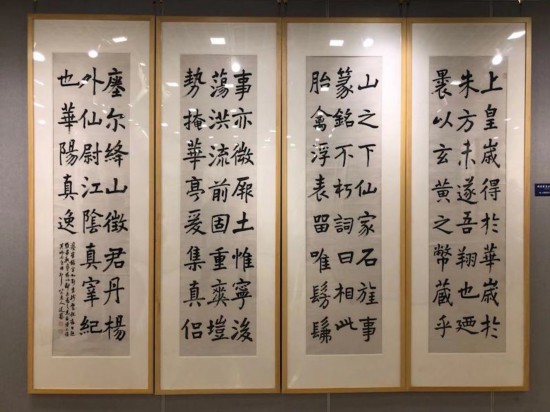 上皇嵗得於華嵗於
朱方未遂吾翔也廼
裹以玄黄之幣蔵乎
山之下仙家石旌事
篆銘不朽詞曰相此
胎禽浮表留唯髣髴
事亦微厥土惟寧後
蕩洪流前固重爽塏
勢掩華亭爰集真侣
瘞尔絳山徵君丹楊
外仙尉江陰真宰紀
也華陽真逸